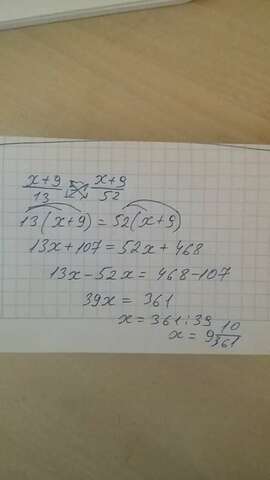 x+9/13 = x+9/52
13(x+9) = 52(x+9)
13x+107 = 52x+468
13x-52x = 468-107
39x = 361
x = 361:39
x = 9 10/361